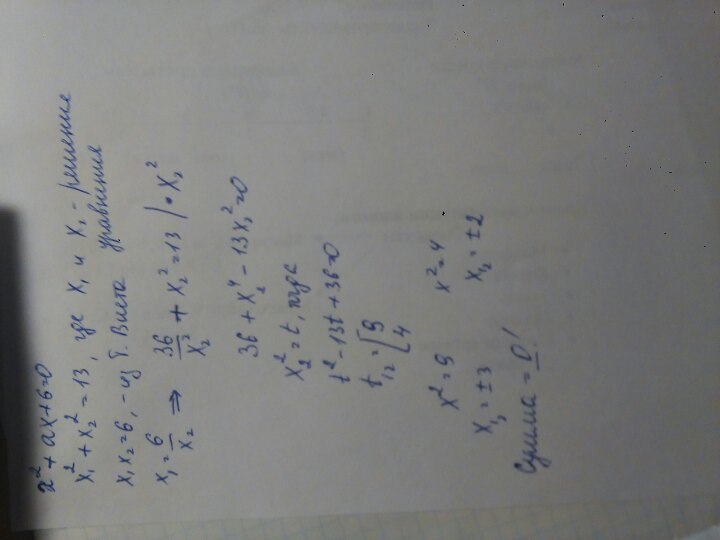 x²+ax+6=0
x₁²+x₂²=13, где x₁ и x₂ - решения
уравнения
x₁x₂=6, - из т. Виета
x₁=6/x₂ ⇒ 36/x₂² + x₂²=13 | • x₂²
36+x₂⁴-13x₂²=0
x₂²=t, тогда
t²-13t+36=0
t₁₂=[9
4
x²=9 x²=4
x₁₂=±3 x₁₂=±2
Сумма = 0!